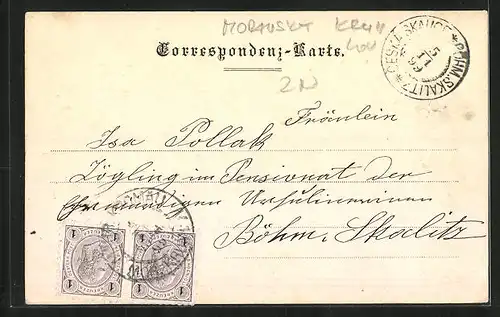 MORAVSKÝ KRUM
LOV
Correspondenz-Karte.
2N
ČESKÁ SKALICE * BÖHM. SKALITZ *
5
11
99
Fräulein
Isa Pollak
Zögling im Pensionat der
Ehrwürdigen Ursulinerinen
Böhm. Skalitz
1 KREUZER 1
1 KREUZER 1